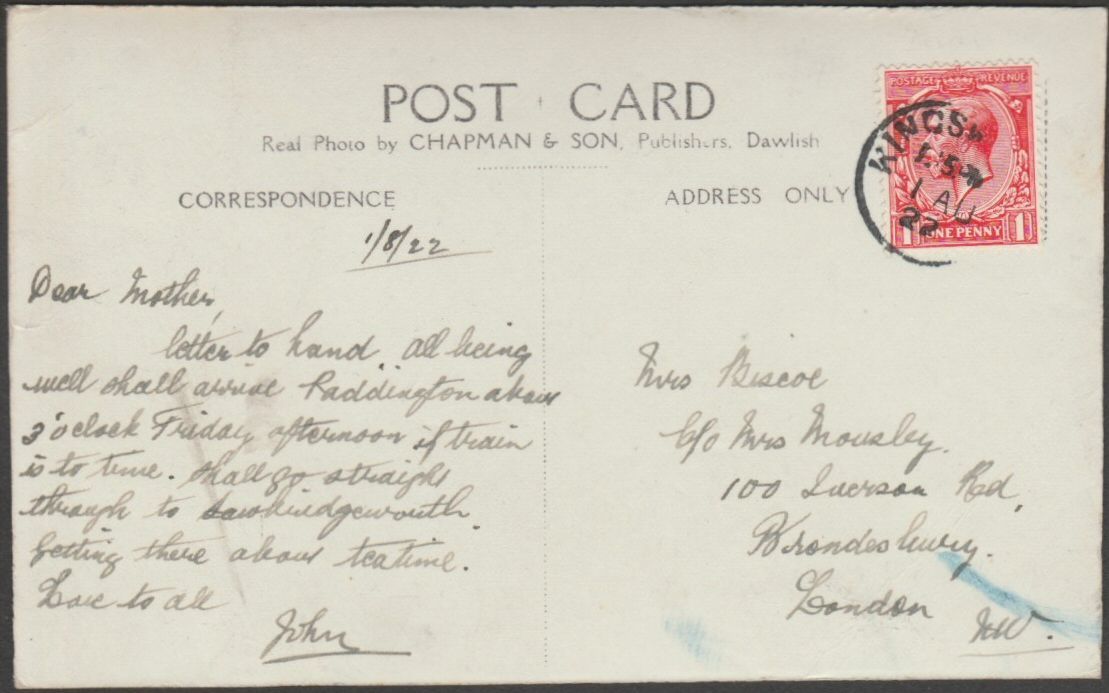 POST CARD
Real Photo by CHAPMAN & SON, Publishers, Dawlish
CORRESPONDENCE
ADDRESS ONLY
POSTAGE REVENUE
1 ONE PENNY 1
KINGSW
1 AU
22
1/8/22
Dear Mother,
letter to hand all being
well shall arrive Paddington about
3 o'clock Friday afternoon if train
is to time. shall go straight
through to Sawbridgeworth
getting there about teatime.
Love to all
John
Mrs Biscoe
C/o Mrs Mousley.
100 Iverson Rd,
Brondesbury.
London
NW.